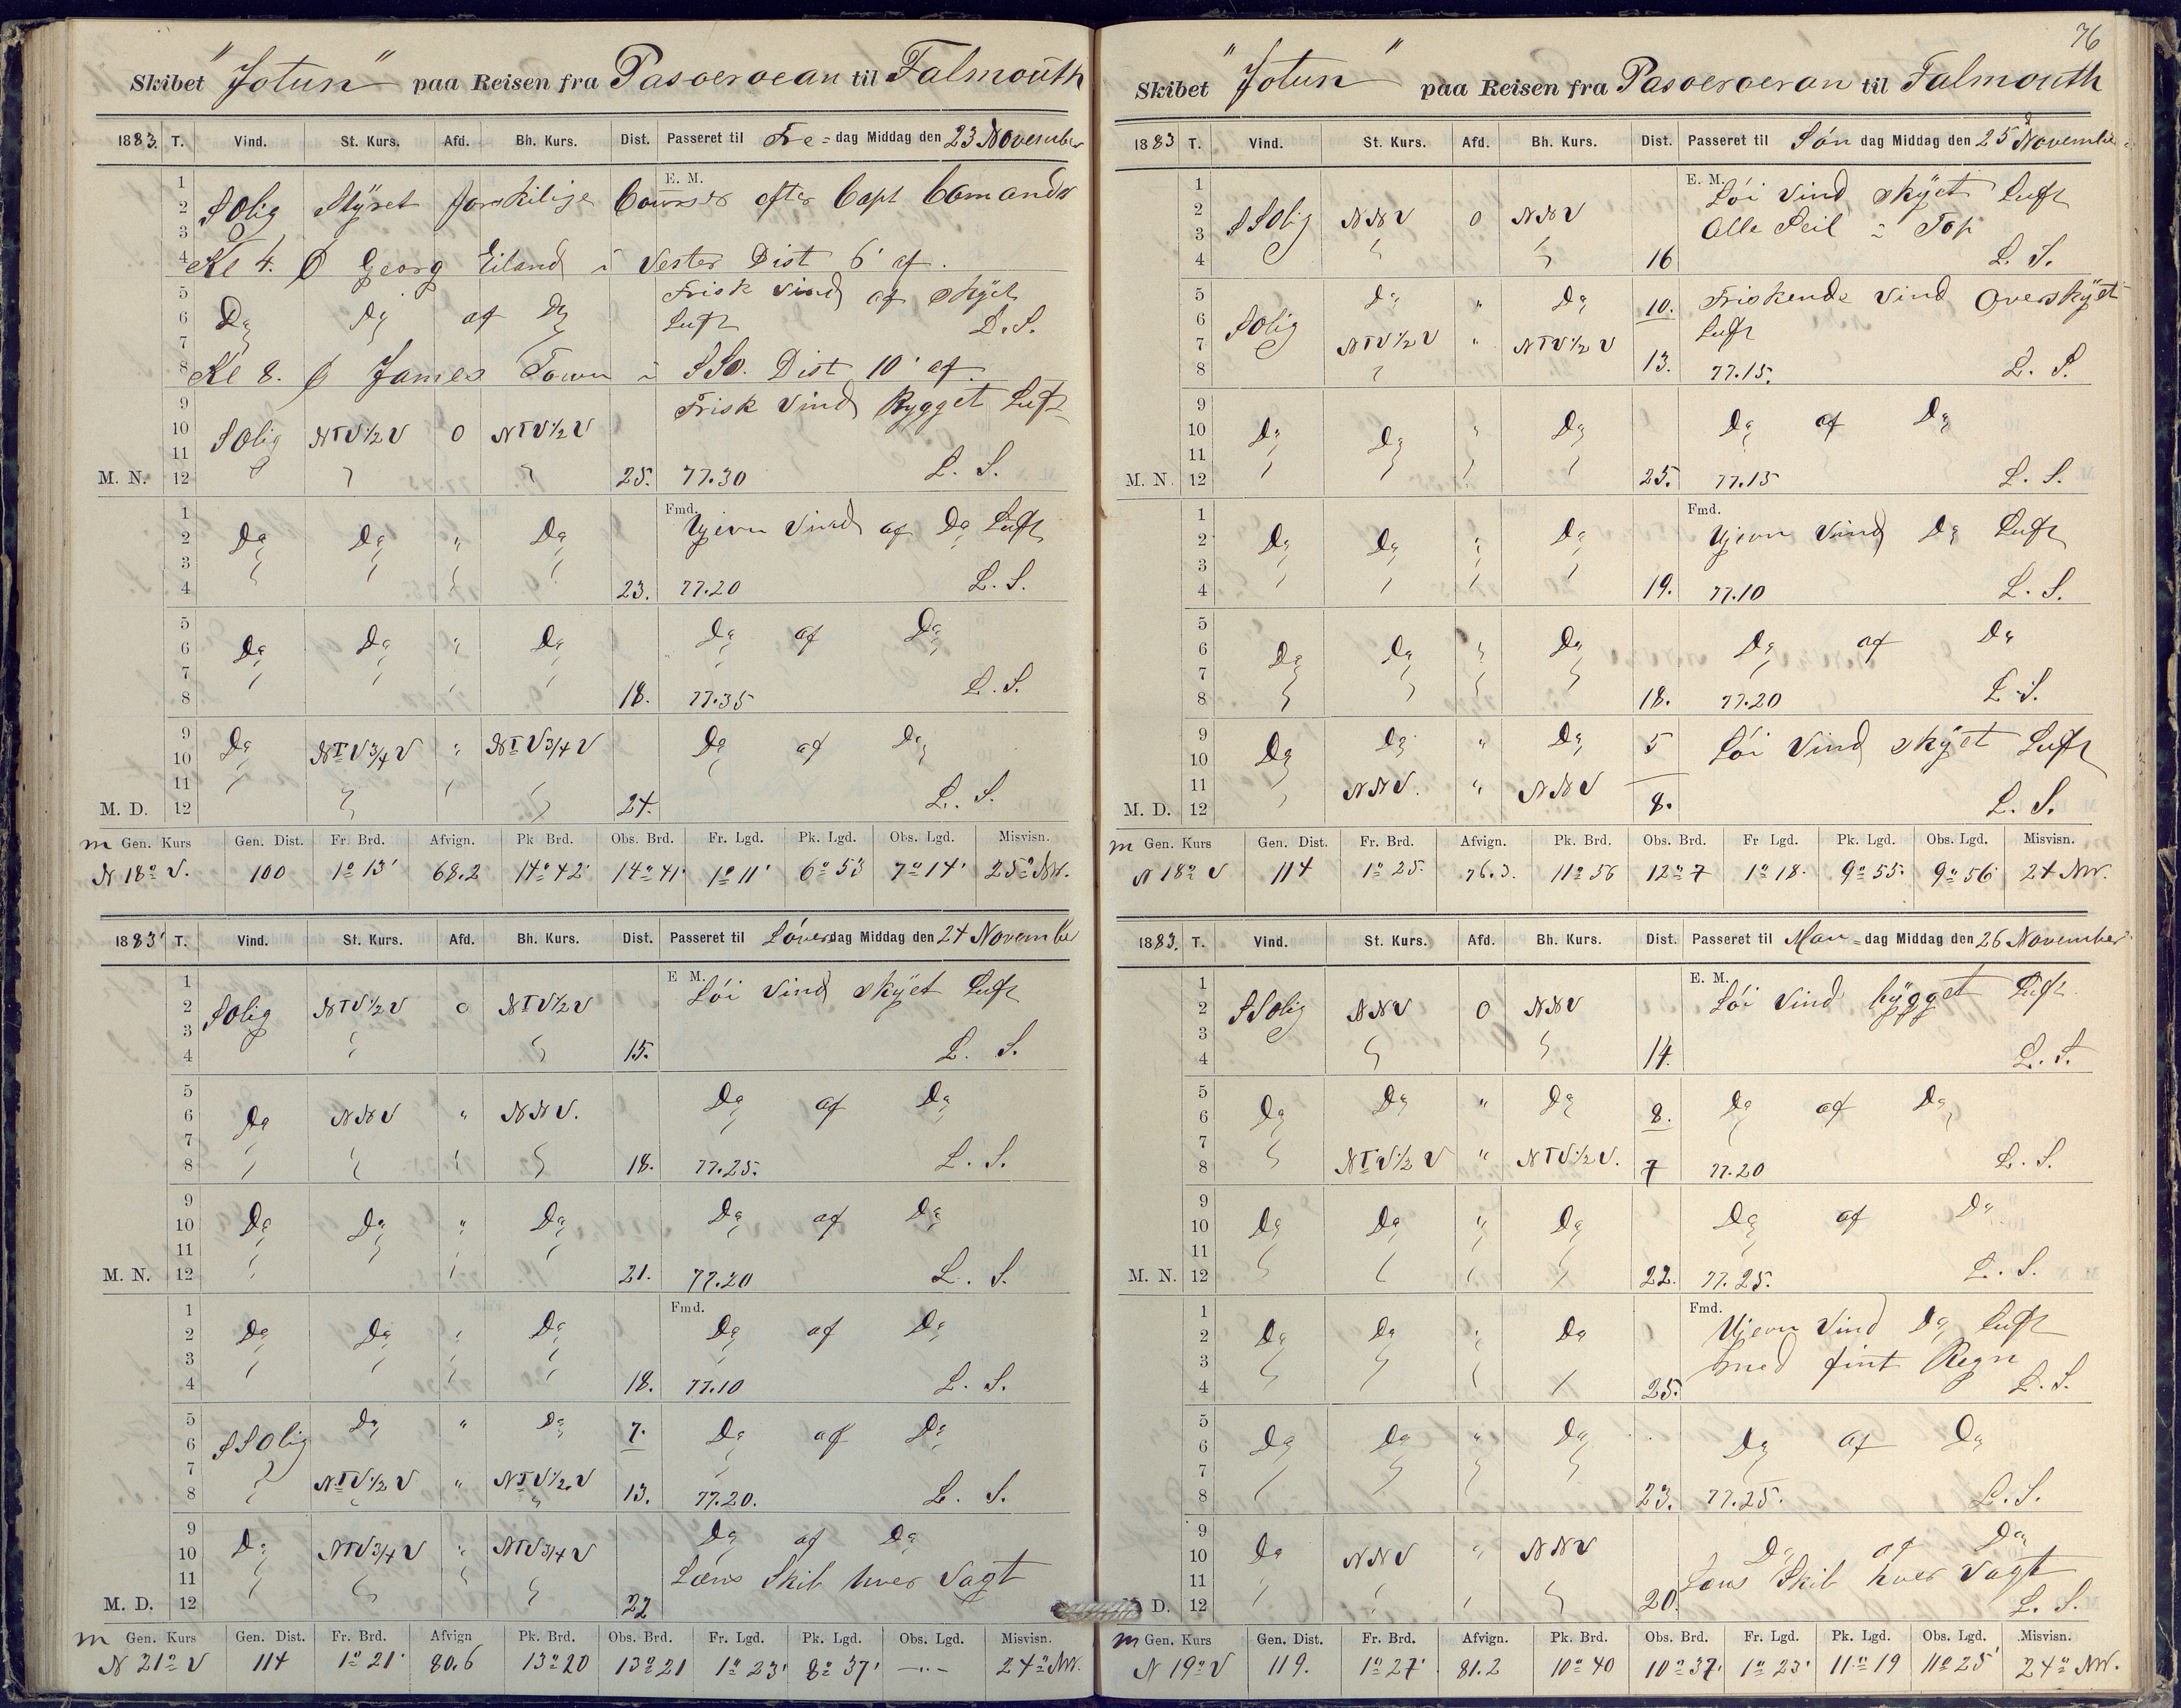 Skibet "Jotun" paa Reisen fra Pasoeroean til Falmouth
1883. T. Vind. St. Kurs. Afd. Bh. Kurs. Dist. Passeret til Fre=dag Middag den 23 November
E. M.
1
2 SOlig Styret forskilige Courser efter Capt Comando
3
4 Kl 4. Georg Eiland i Vester Dist 6' af.
5 Frisk Vind af skyet
6 Do Do af Do Luft L. S.
7
8 Kl 8. James Town i SSO. Dist 10' af
9 Frisk Vind Bygget Luft
10 SOlig NTV½V 0 NTV½V
11
M. N. 12 25. 77.30 L. S.
Fmd.
1 Ujevn Vind af Do Luft
2 Do Do " Do
3
4 23. 77.20 L. S.
5 Do af Do
6 Do Do " Do
7
8 18. 77.35 L. S.
9 Do NTV¾V " NTV¾V Do af Do
10
11
M. D. 12 24. L. S.
m Gen. Kurs Gen. Dist. Fr. Brd. Afvign. Pk Brd. Obs. Brd. Fr. Lgd. Pk. Lgd. Obs. Lgd. Misvisn.
N 18° V. 100 1° 13' 68.2 14° 42' 14° 41' 1° 11' 6° 53 7° 14' 25° NW.
1883 T. Vind. St. Kurs. Afd. Bh. Kurs. Dist. Passeret til Löverdag Middag den 24 November
E M.
1 Löi Vind skyet Luft
2 SOlig NTV½V 0 NTV½V
3
4 15. L. S.
5 Do af Do
6 Do NNV " NNV.
7
8 18. 77.25. L. S.
9
10 Do Do " Do Do af Do
11
M. N. 12 21. 77.20 L. S.
Fmd.
1
2 Do Do " Do Do af Do
3
4 18. 77.10 L. S.
5 Do " Do 7. Do af Do
6 SSOlig
7
8 NTV½V " NTV½V 13. 77.20. L. S.
9 Do af Do
10 Do NTV¾V " NTV¾V
11 Læns Skib hver Vagt
M. D. 12 22
m Gen. Kurs Gen. Dist. Fr. Brd. Afvign Pk. Brd. Obs. Brd. Fr. Lgd. Pk. Lgd. Obs. Lgd. Misvisn.
N 21° V 114 1° 21' 80.6 13° 20 13° 21 1° 23' 8° 37' —"— 24° NW.
76
Skibet "Jotun" paa Reisen fra Pasoeroeran til Falmouth
1883 T. Vind. St. Kurs. Afd. Bh. Kurs. Dist. Passeret til Sön dag Middag den 25 November
E. M.
1 Löi Vind skyet Luft
2 SSOlig NNV 0 NNV Alle Seil i Top
3
4 16 L. S.
5 Do " Do 10. Friskende Vind Overskyet
6 SOlig Luft
7 NTV½V " NTV½V
8 13. 77.15. L. S.
9
10 Do Do " Do Do af Do
11
M. N. 12 25. 77.15 L. S.
Fmd.
1 Ujevn Vind Do Luft
2 Do Do " Do
3
4 19. 77.10 L. S.
5
6 Do Do " Do Do af Do
7
8 18. 77.20 L. S.
9 Do " Do 5 Löi Vind skyet Luft
10 Do
11 NNV. " NNV
M. D. 12 8. L. S.
m Gen. Kurs Gen. Dist. Fr. Brd. Afvign. Pk. Brd. Obs. Brd. Fr Lgd. Pk. Lgd. Obs. Lgd. Misvisn.
N 18° V 114 1° 25. 76.3. 11° 56 12° 7 1° 18. 9° 55. 9° 56 24 NW.
1883. T. Vind. St. Kurs. Afd. Bh. Kurs. Dist. Passeret til Man=dag Middag den 26 November
E. M.
1 Löi Vind bygget Luft
2 SSOlig NNV 0 NNV
3
4 14. L. S.
5
6 Do Do " Do 8. Do af Do
7
8 NTV½V " NTV½V. 7 77.20 L. S.
9
10 Do Do " Do Do af Do
11
M. N. 12 22. 77.25. L. S.
Fmd.
1 Ujevn Vind Do Luft
2 Do Do " Do
3 med fint Regn
4 25. L. S.
5
6 Do Do " Do Do af Do
7
8 23. 77.25. L. S.
9 Do af Do
10 Do NNV " NNV
11 Læns Skib hver Vagt
D. 12 20. L. S.
m Gen. Kurs Gen. Dist. Fr. Brd. Afvign. Pk. Brd. Obs. Brd. Fr. Lgd. Pk. Lgd. Obs. Lgd. Misvisn.
N 19° V 119. 1° 27' 81.2 10° 40 10° 37' 1° 23' 11° 19 11° 25' 24° NW.